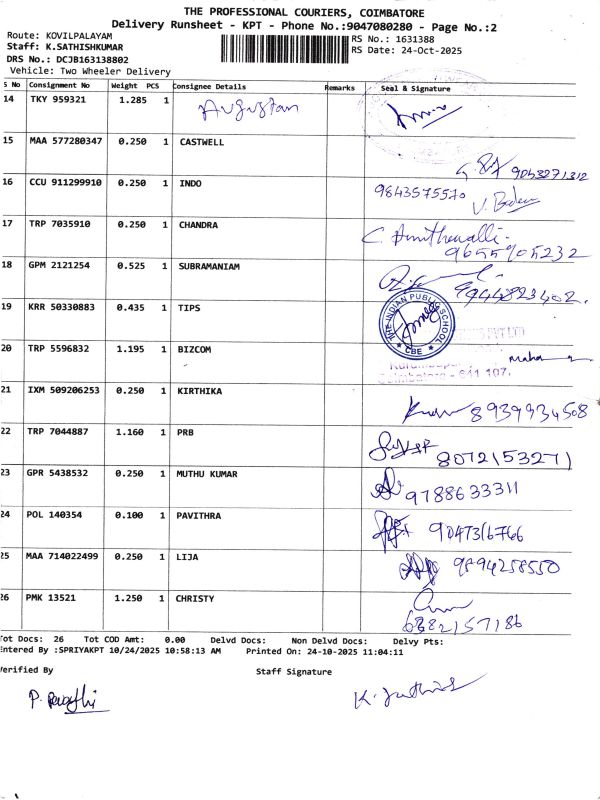 THE PROFESSIONAL COURIERS, COIMBATORE
Delivery Runsheet - KPT - Phone No.:9047080280 - Page No.:2
Route: KOVILPALAYAM
Staff: K.SATHISHKUMAR
DRS No.: DCJB163138802
Vehicle: Two Wheeler Delivery
RS No.: 1631388
RS Date: 24-Oct-2025
S No Consignment No Weight PCS Consignee Details Remarks Seal & Signature
14 TKY 959321 1.285 1 Augustan
15 MAA 577280347 0.250 1 CASTWELL 9043271312
16 CCU 911299910 0.250 1 INDO 9843575570
17 TRP 7035910 0.250 1 CHANDRA 9655905232
18 GPM 2121254 0.525 1 SUBRAMANIAM 9944823402.
19 KRR 50330883 0.435 1 TIPS THE INDIAN PUBLIC SCHOOL CBE
20 TRP 5596832 1.195 1 BIZCOM Maha
21 IXM 509206253 0.250 1 KIRTHIKA 8939934508
22 TRP 7044887 1.160 1 PRB 8072153271
23 GPR 5438532 0.250 1 MUTHU KUMAR 9788633311
24 POL 140354 0.100 1 PAVITHRA 9047316766
25 MAA 714022499 0.250 1 LIJA 9894258550
26 PMK 13521 1.250 1 CHRISTY 6382157186
Tot Docs: 26 Tot COD Amt: 0.00 Delvd Docs: Non Delvd Docs: Delvy Pts:
Entered By :SPRIYAKPT 10/24/2025 10:58:13 AM Printed On: 24-10-2025 11:04:11
Verified By Staff Signature